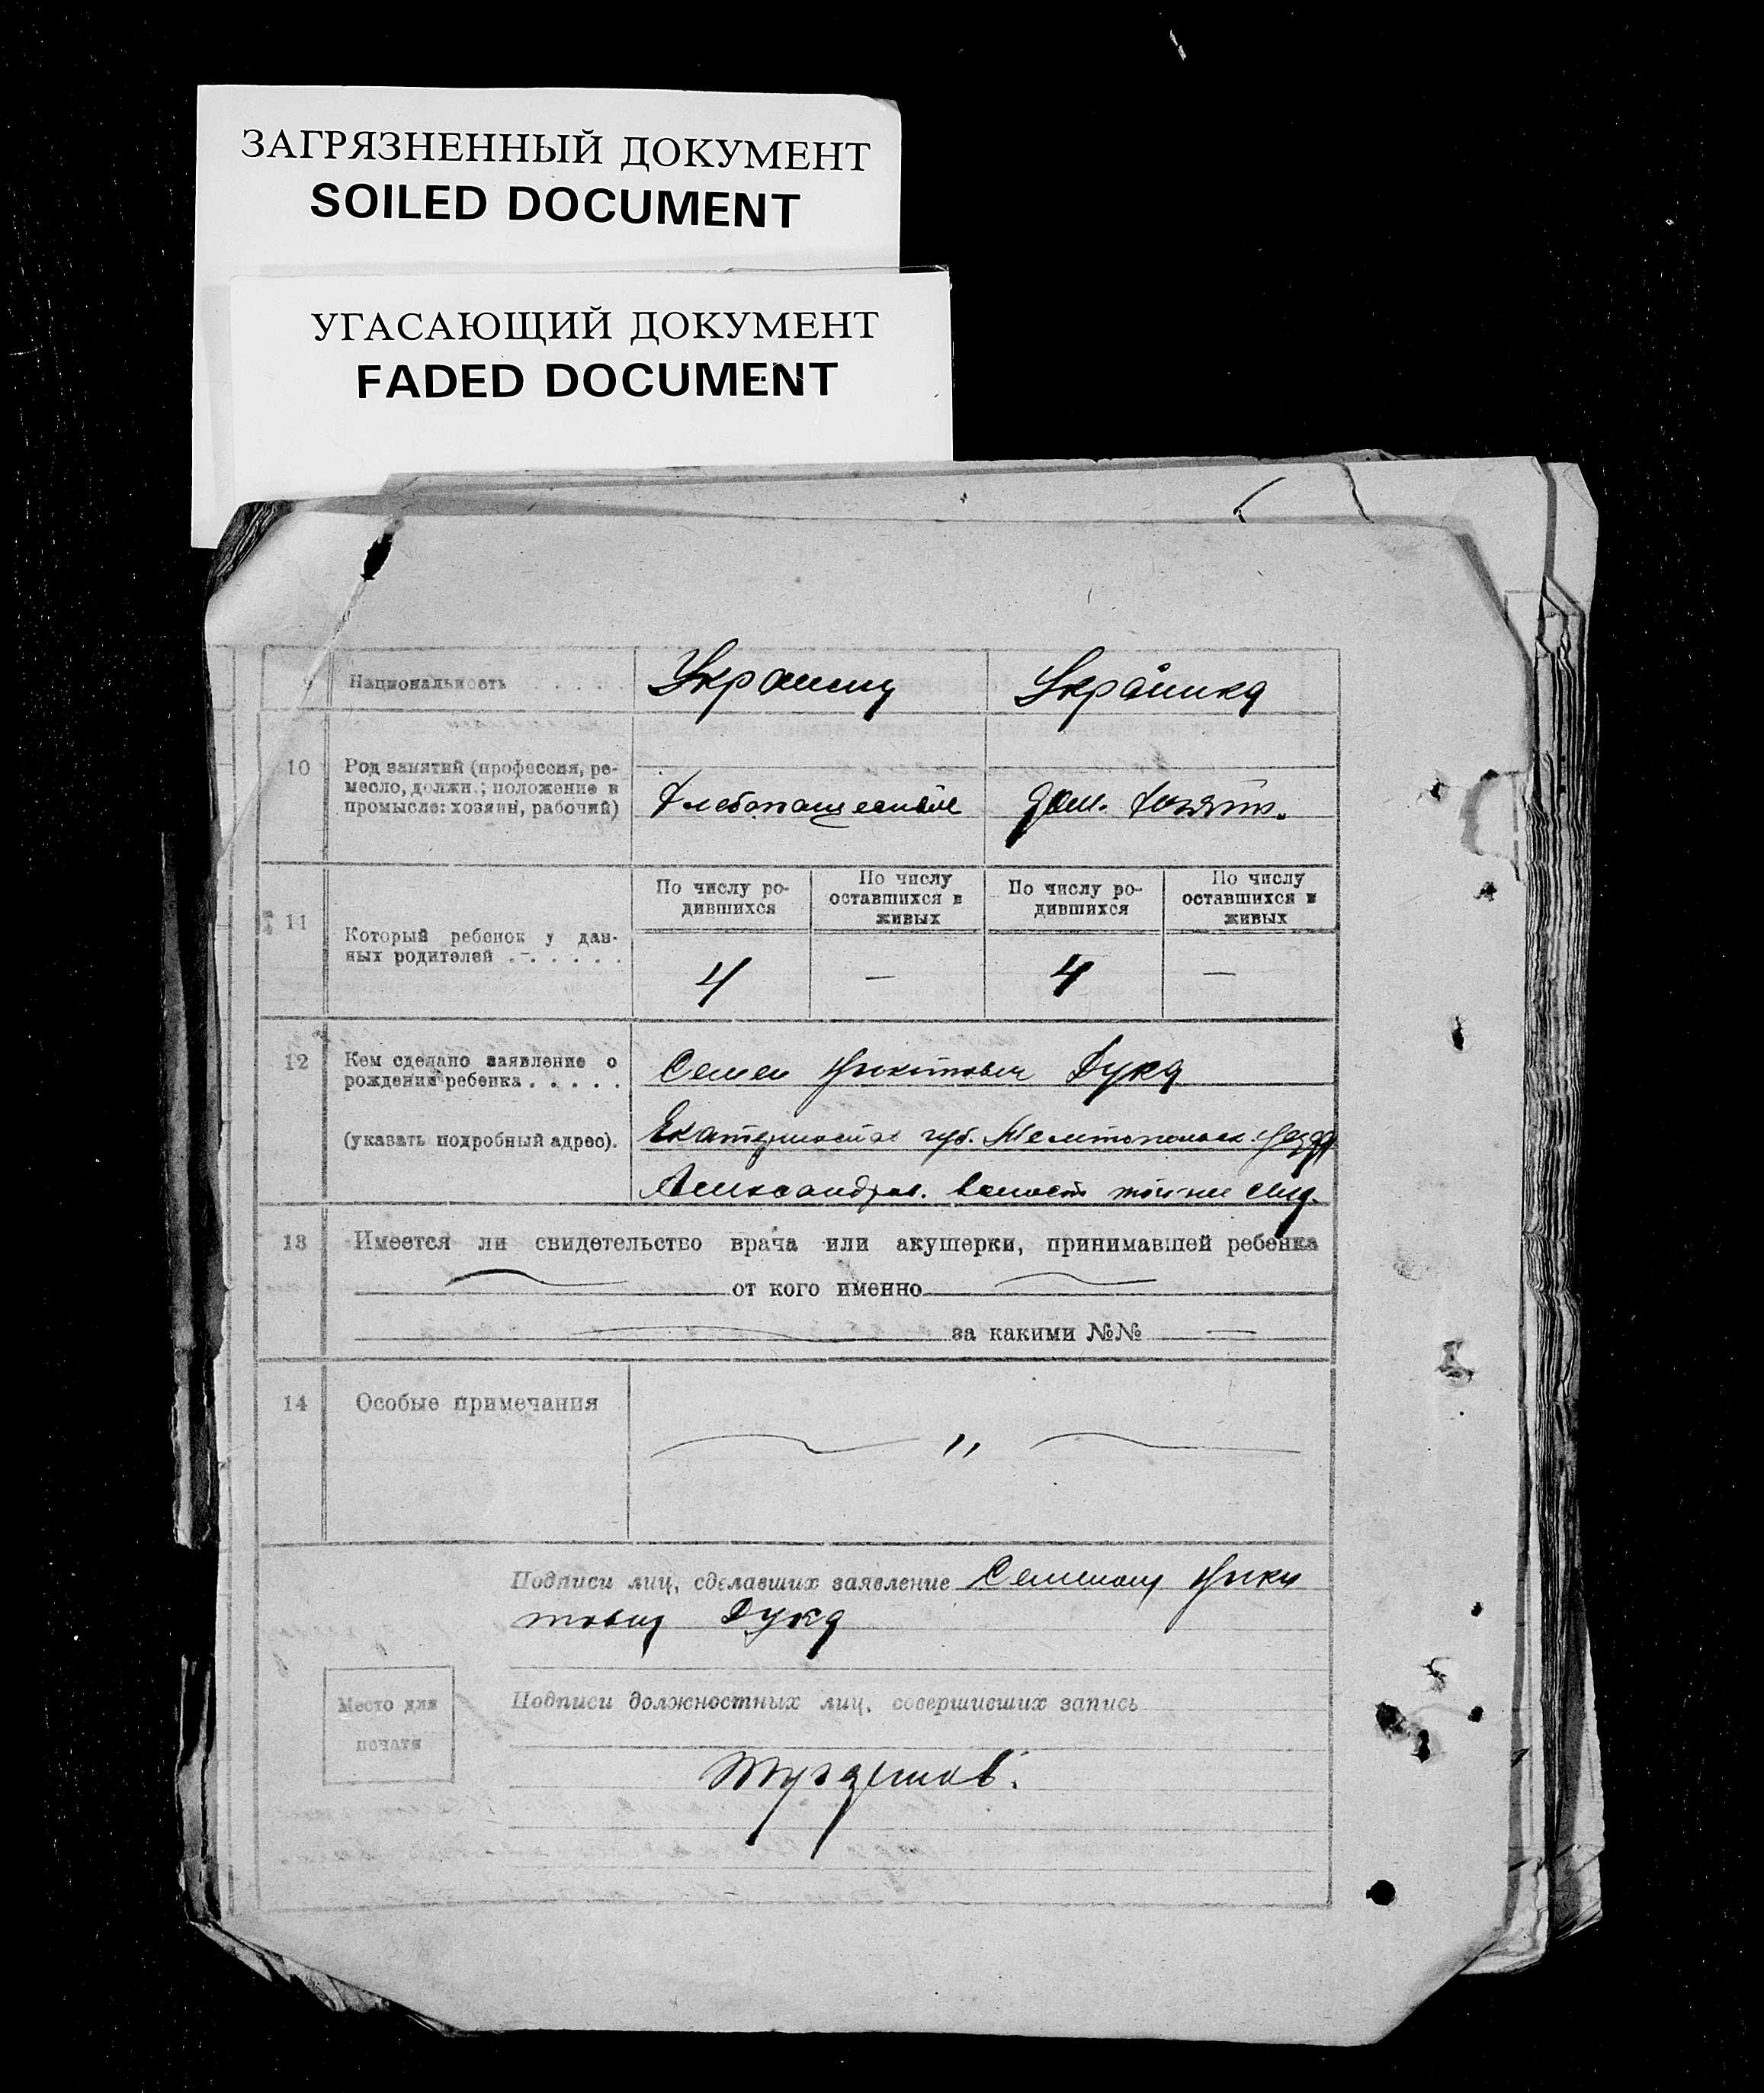 ЗАГРЯЗНЕННЫЙ ДОКУМЕНТ
SOILED DOCUMENT
УГАСАЮЩИЙ ДОКУМЕНТ
FADED DOCUMENT
9 Национальность . . . . . Украинец Украинка
10 Род занятий (профессия, ре-
месло, должн.; положение в
промысле: хозяин, рабочий)
Хлебопашество дом. хозяйк.
11 Который ребенок у дан-
ных родителей . . . . . .
По числу ро-
дившихся
По числу
оставшихся в
живых
По числу ро-
дившихся
По числу
оставшихся в
живых
4 — 4 —
12 Кем сделано заявление о
рождении ребенка . . . . .
Семен Никитович Дука
(указать подробный адрес).
губ. Мелитопольск. уезда
Александров. волости
13 Имеется ли свидетельство врача или акушерки, принимавшей ребенка
от кого именно
за какими №№ —
14 Особые примечания
"
Подписи лиц, сделавших заявление Ники
Дука
Место для
печати
Подписи должностных лиц, совершивших запись